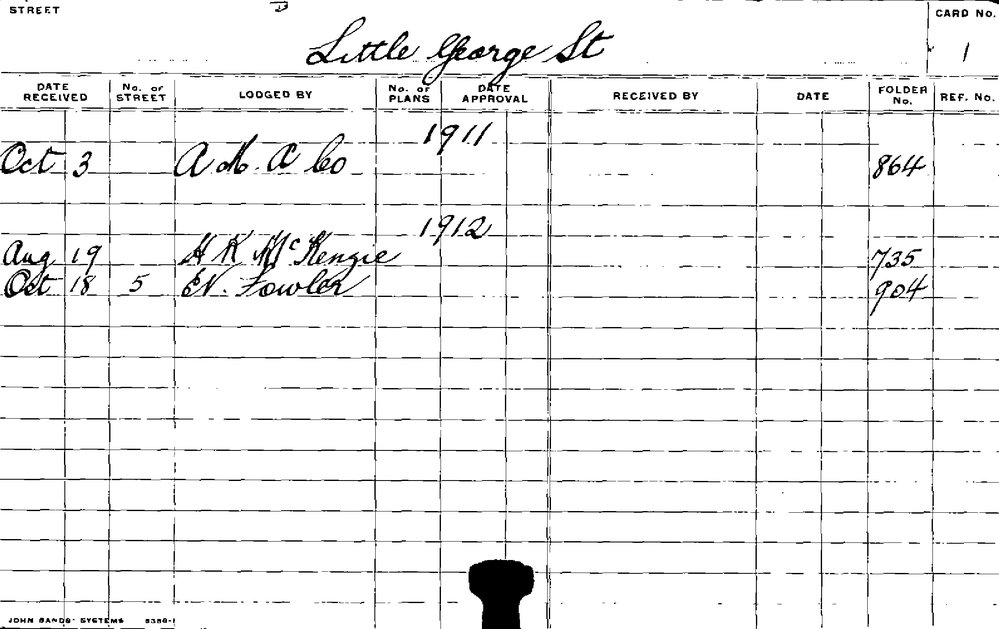 STREET Little George St CARD No. 1
DATE RECEIVED No. of STREET LODGED BY No. of PLANS DATE APPROVAL RECEIVED BY DATE FOLDER No. REF. No.
1911
Oct 3 A M. A Co 864
1912
Aug 19 H K McKenzie 735
Oct 18 5 EV. Fowler 904
JOHN SANDS' SYSTEMS